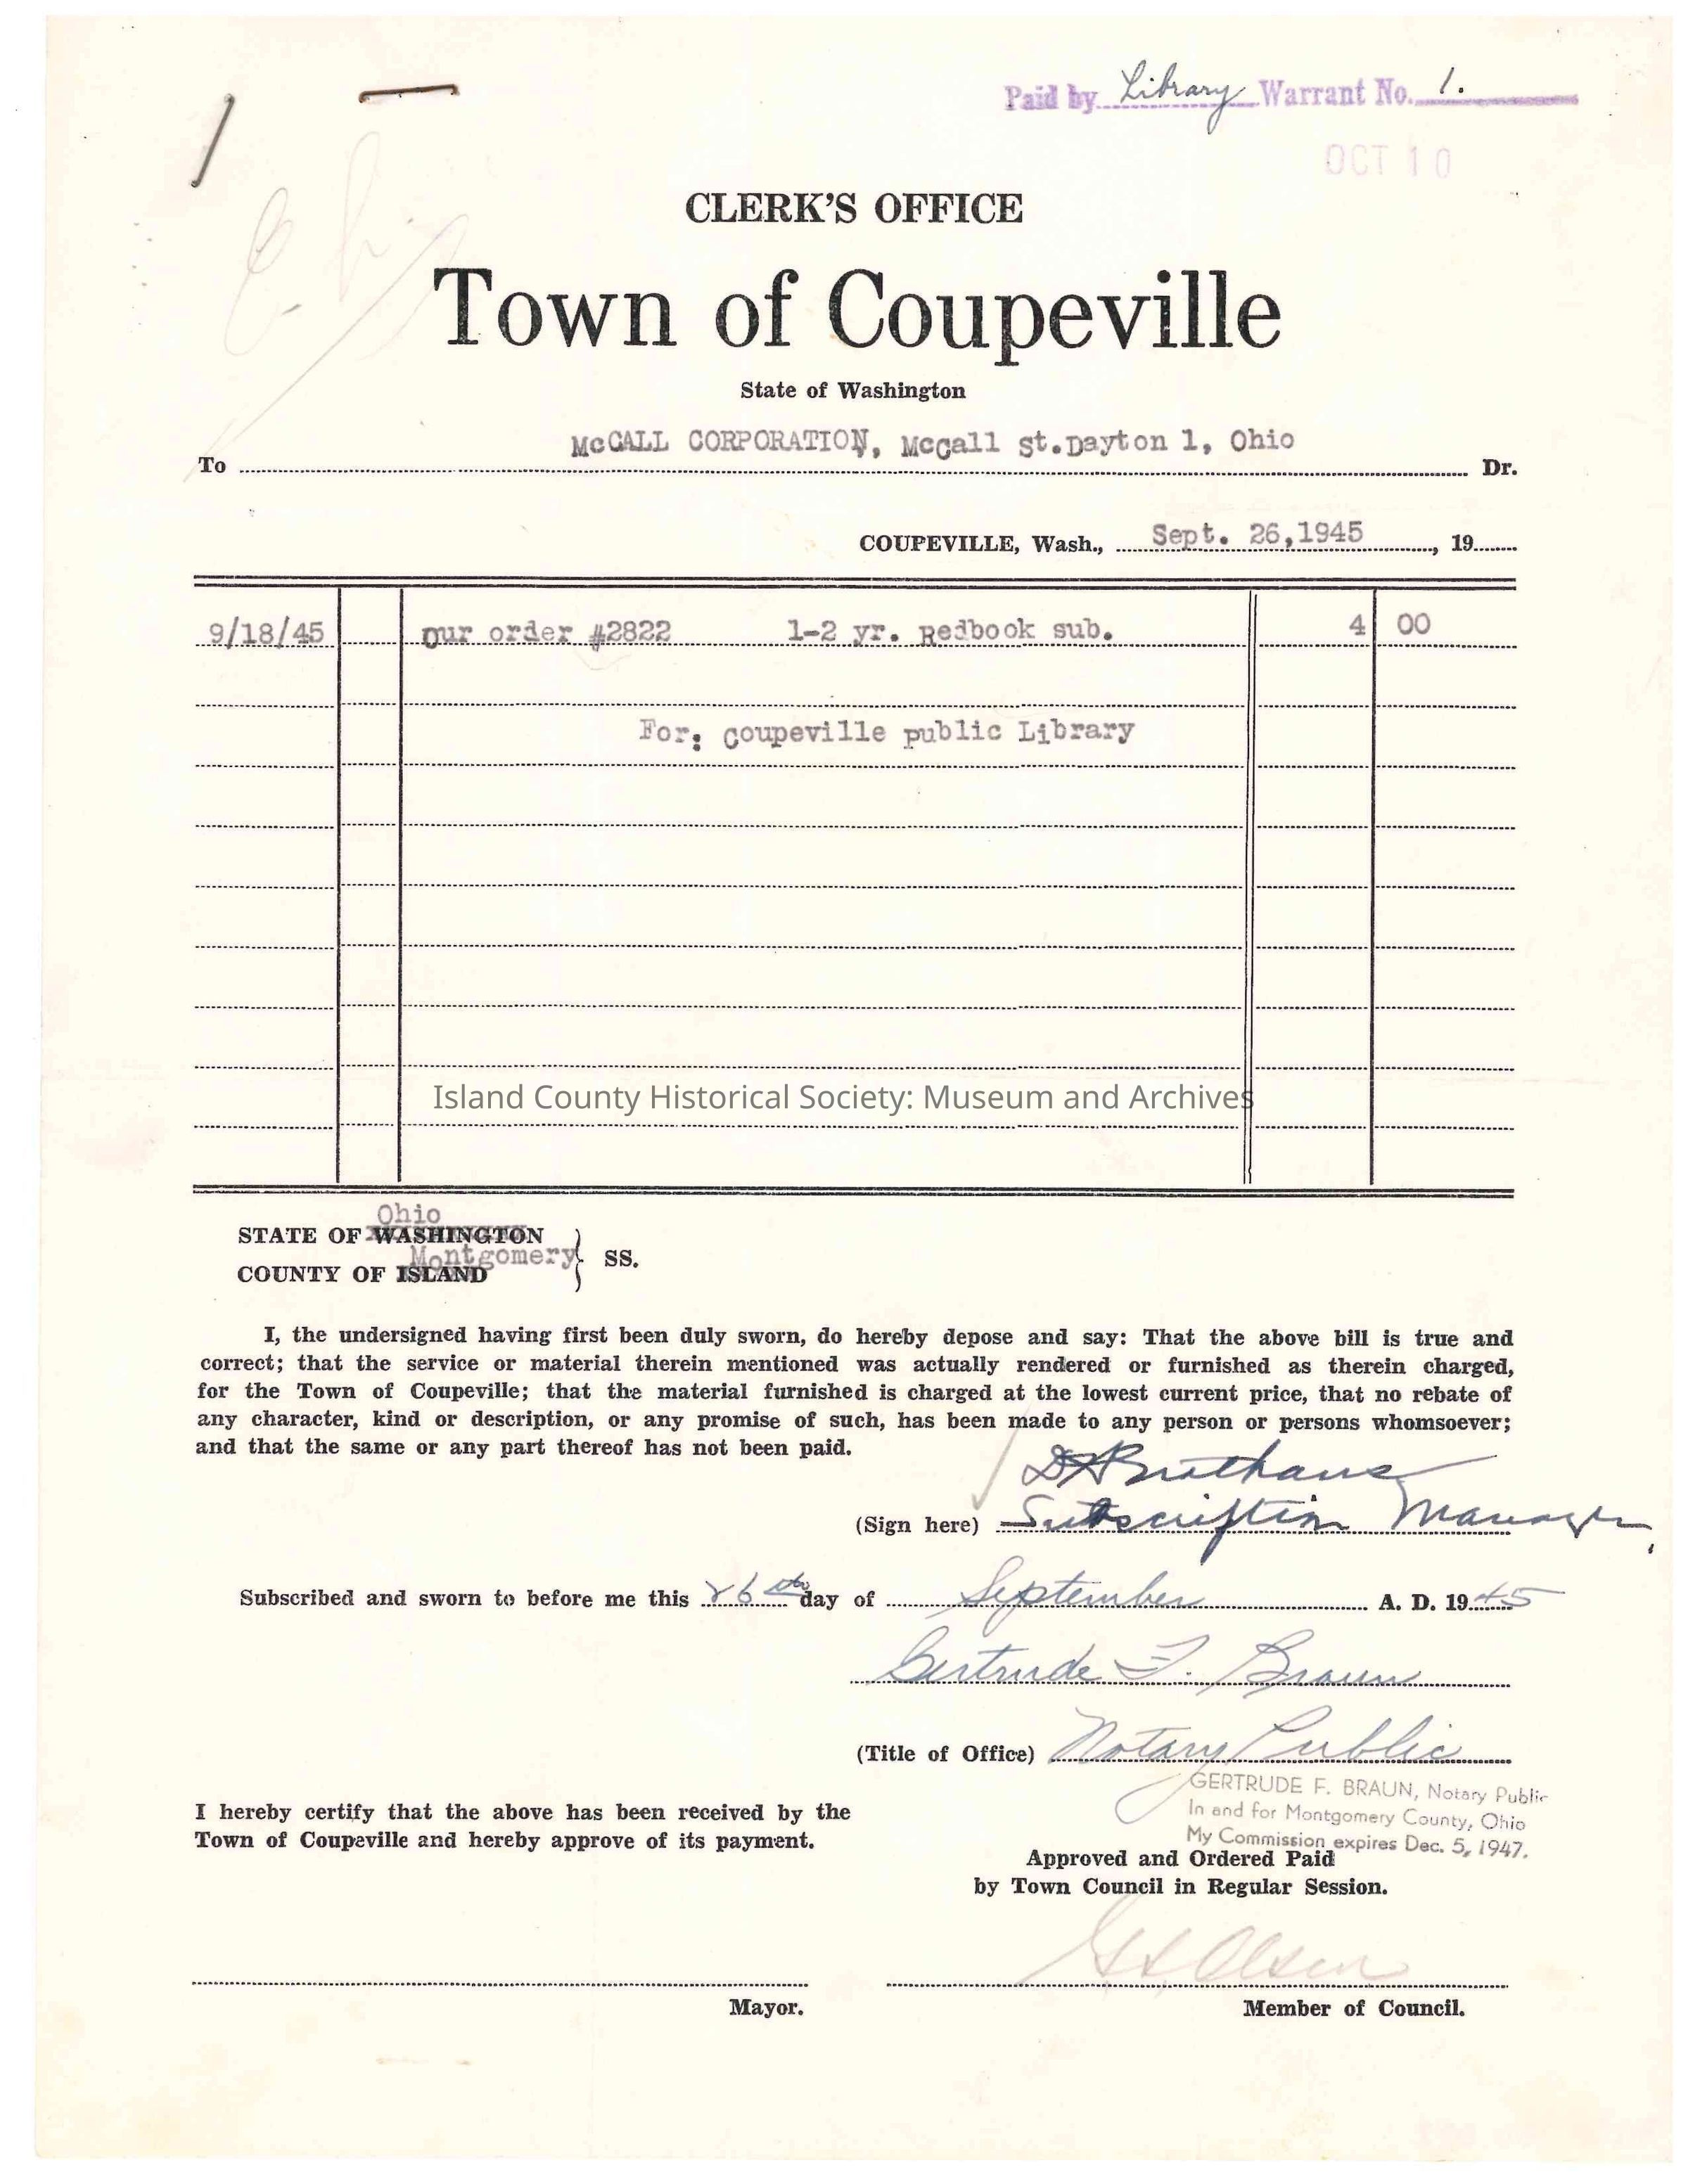 Paid by Library Warrant No. 1.
OCT 10
CLERK'S OFFICE
Town of Coupeville
State of Washington
To McCALL CORPORATION, McCall St. Dayton 1, Ohio Dr.
COUPEVILLE, Wash., Sept. 26,1945, 19
9/18/45 our order #2822 1-2 yr. Redbook sub. 4 00
For: Coupeville Public Library
Island County Historical Society: Museum and Archives
Ohio
STATE OF WASHINGTON
Montgomery
SS.
COUNTY OF ISLAND
I, the undersigned having first been duly sworn, do hereby depose and say: That the above bill is true and
correct; that the service or material therein mentioned was actually rendered or furnished as therein charged,
for the Town of Coupeville; that the material furnished is charged at the lowest current price, that no rebate of
any character, kind or description, or any promise of such, has been made to any person or persons whomsoever;
and that the same or any part thereof has not been paid.
(Sign here) Subscription Manager
Subscribed and sworn to before me this 26th day of September A. D. 1945
Gertrude F. Braun
(Title of Office) Notary Public
GERTRUDE F. BRAUN, Notary Public
In and for Montgomery County, Ohio
My Commission expires Dec. 5, 1947.
I hereby certify that the above has been received by the
Town of Coupeville and hereby approve of its payment.
Approved and Ordered Paid
by Town Council in Regular Session.
Olsen
Mayor.
Member of Council.